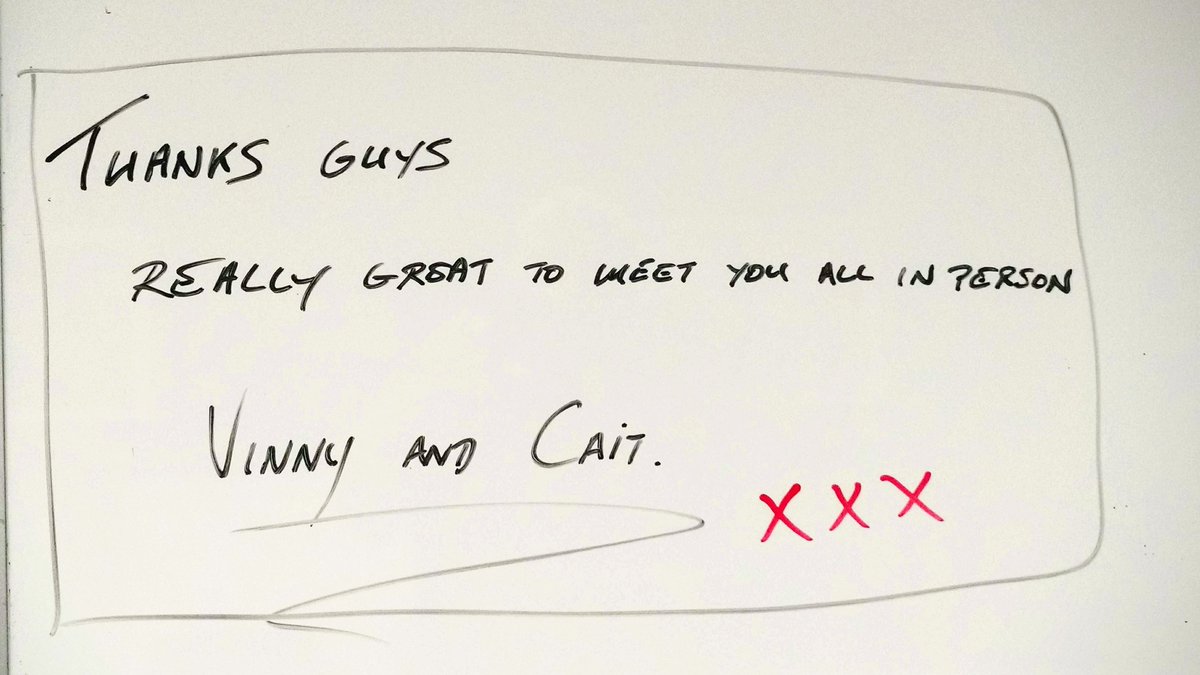 THANKS GUYS
REALLY GREAT TO MEET YOU ALL IN PERSON
VINNY AND CAIT.
XXX